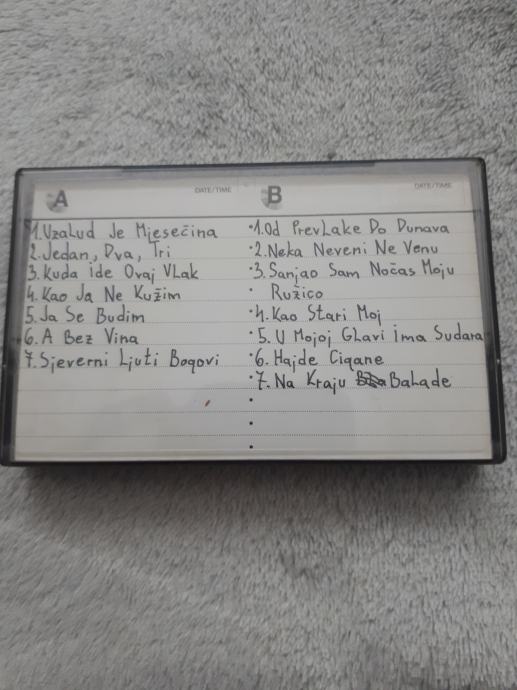 A DATE/TIME
1.Uzalud Je Mjesečina
2.Jedan, Dva, Tri
3.Kuda ide Ovaj Vlak
4.Kao Ja Ne Kužim
5.Ja Se Budim
6.A Bez Vina
7.Sjeverni Ljuti Bogovi
B DATE/TIME
1.Od Prevlake Do Dunava
2.Neka Neveni Ne Venu
3.Sanjao Sam Noćas Moju
Ružico
4.Kao Stari Moj
5.U Mojoj Glavi ima Sudara
6.Hajde Cigane
7.Na Kraju Balade